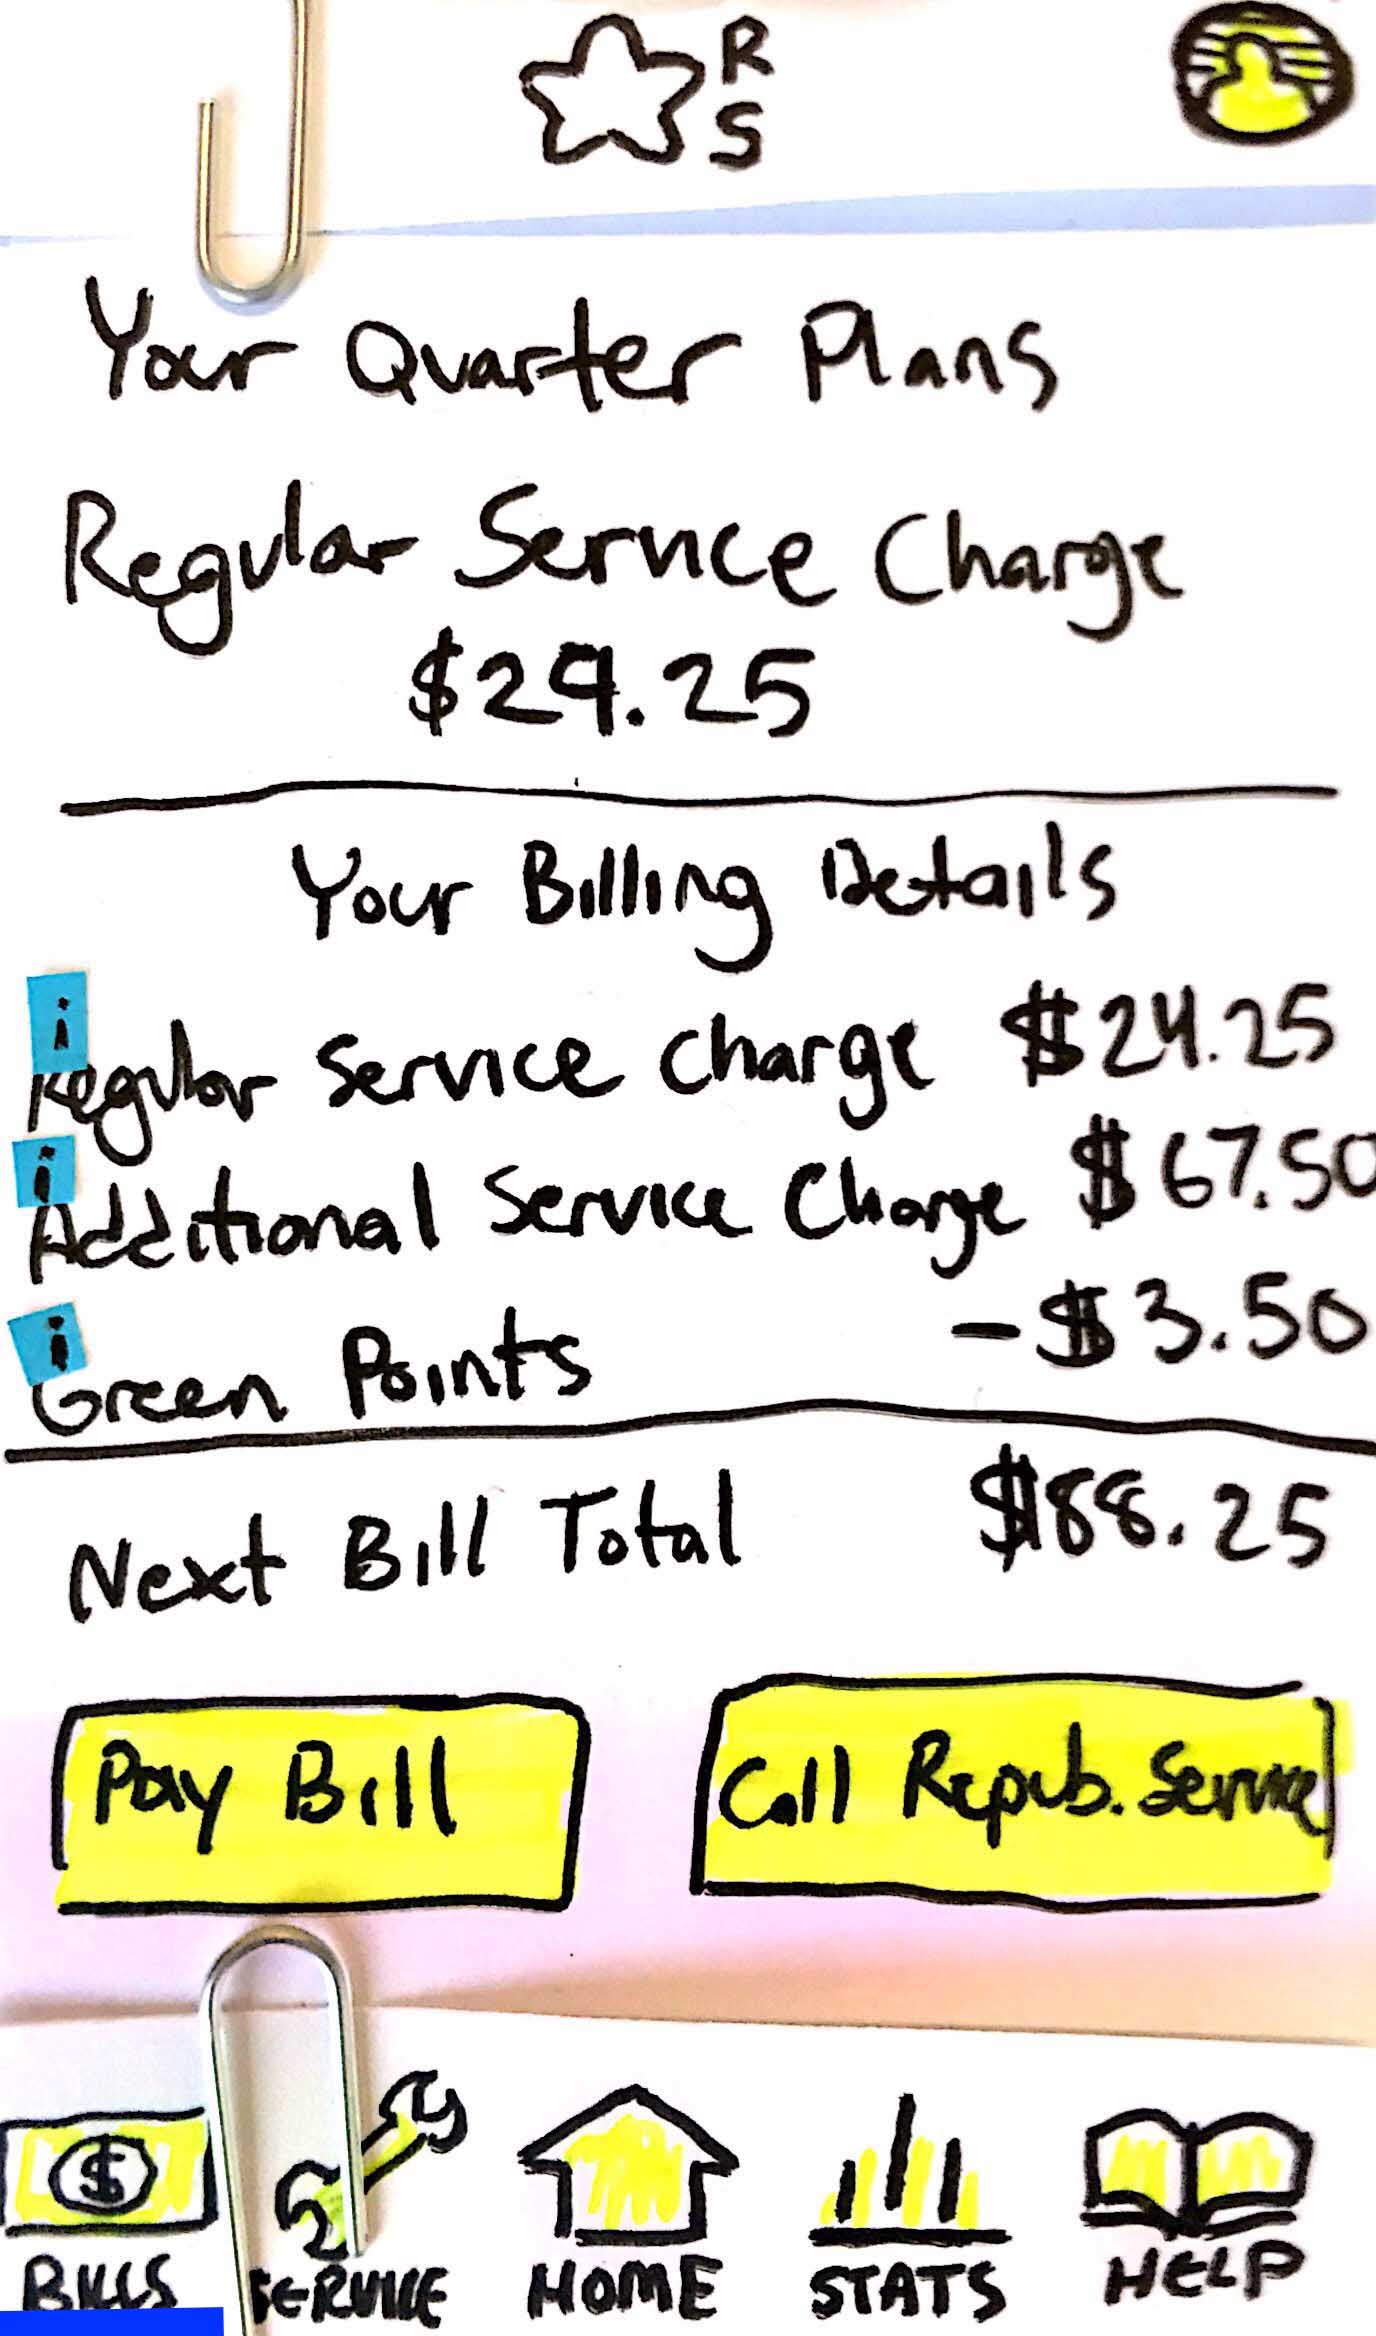 R
S
Your Quarter Plans
Regular Service Charge
$24.25
Your Billing Details
i
Regular Service Charge $24.25
i
Additional Service Charge $67.50
i
Green Points -$3.50
Next Bill Total $88.25
Pay Bill Call Repub. Service
$
BILLS SERVICE HOME STATS HELP